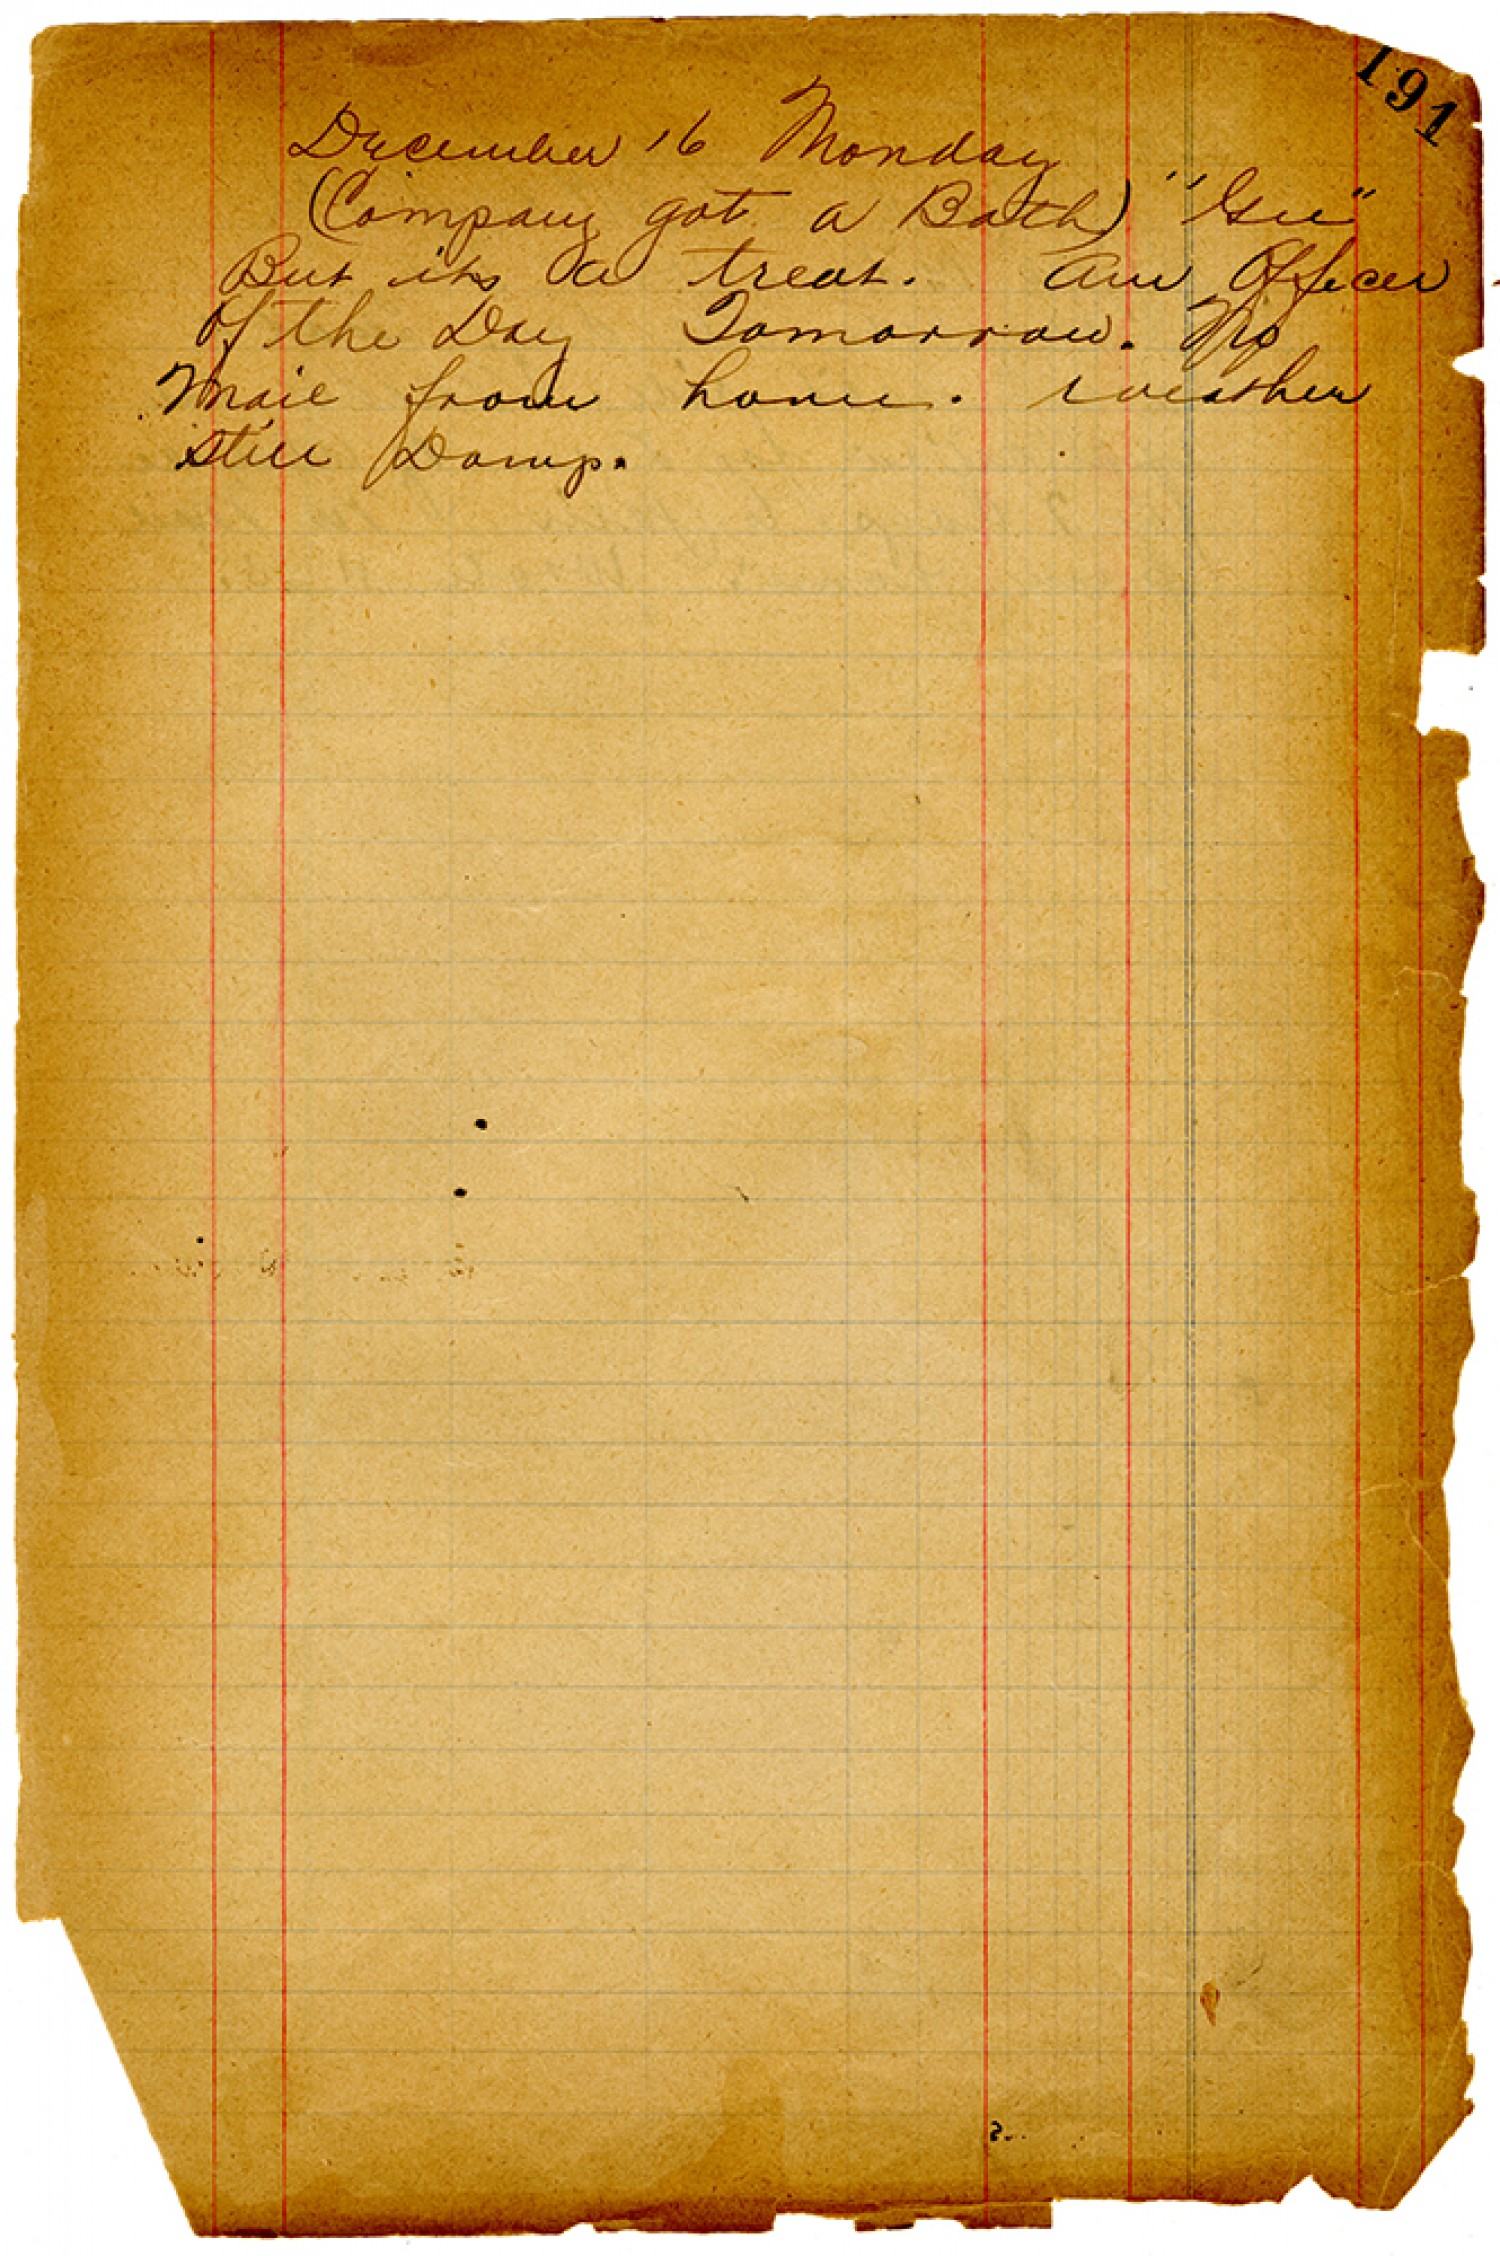 191
December 16 Monday
(Company got a Bath) "Gee"
But its a treat. Am Officer
Of the Day Tomorrow. No
Mail from home. weather
still Damp.